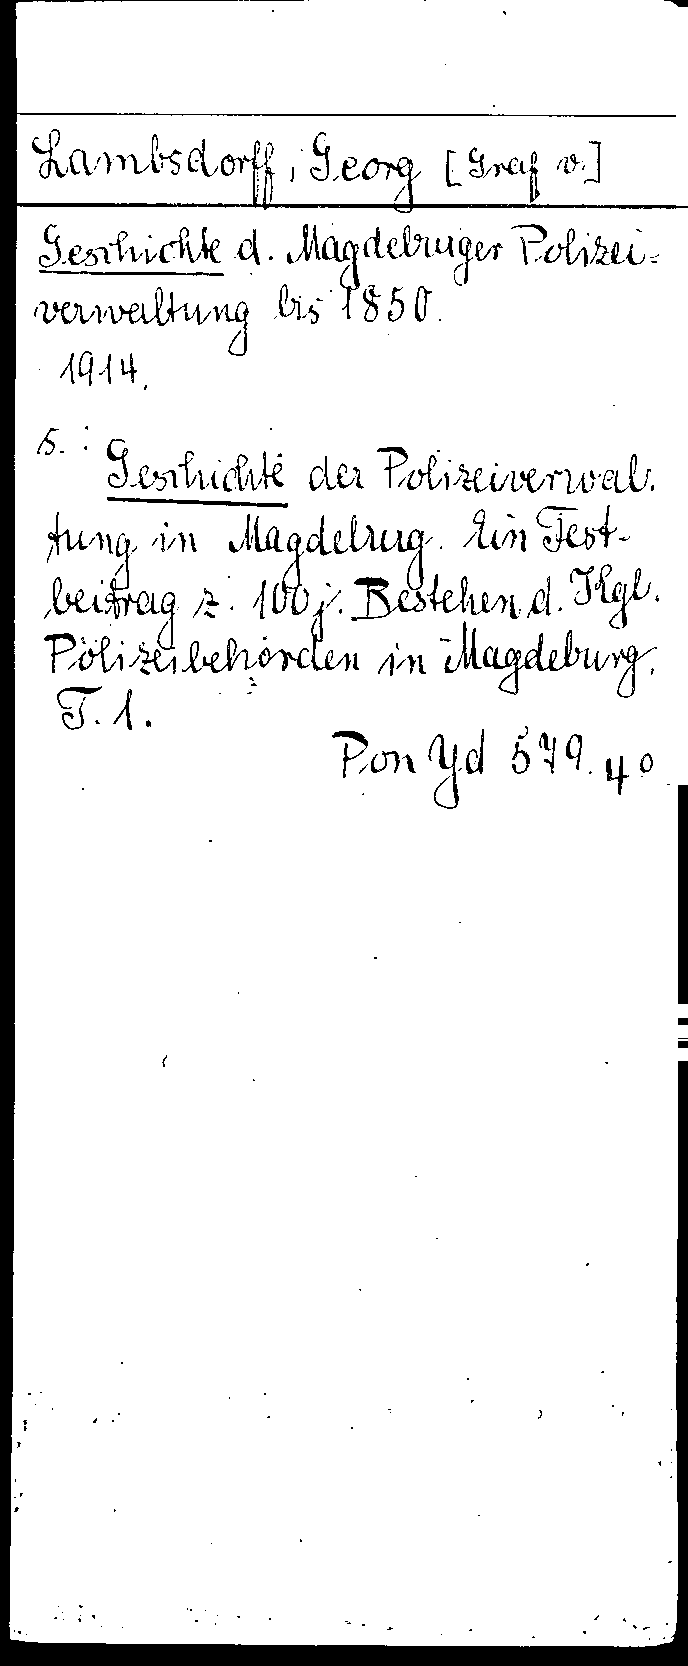 Lambsdorff, Georg [Graf v.]
Geschichte d. Magdeburger Polizei-
verwaltung bis 1850.
1914.
s.:
Geschichte der Polizeiverwal-
tung in Magdeburg. Ein Fest-
beitrag z. 100j. Bestehen d. Kgl.
Polizeibehörden in Magdeburg.
T. 1.
Pon Yd 579. 40